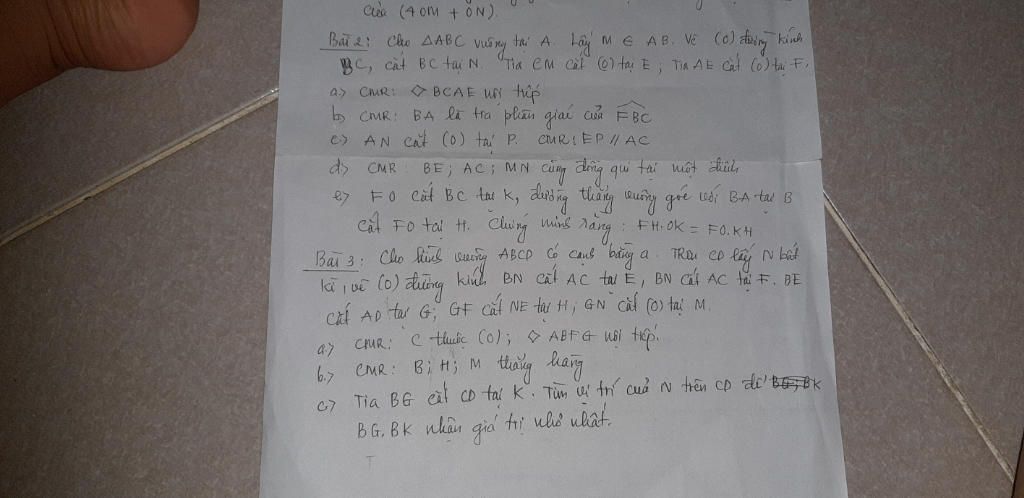 của (4OM + ON).
Bài 2: Cho △ABC vuông tại A. Lấy M ∈ AB. Vẽ (O) đường kính
BC, cắt BC tại N. Tia CM cắt (O) tại E; Tia AE cắt (O) tại F.
a) CMR: ◇ BCAE nội tiếp
b) CMR: BA là tia phân giác của FBC
c) AN cắt (O) tại P. CMR: EP // AC
d) CMR: BE; AC; MN cùng đồng qui tại một điểm
e) FO cắt BC tại K, đường thẳng vuông góc với BA tại B
cắt FO tại H. Chứng minh rằng: FH.OK = FO.KH
Bài 3: Cho hình vuông ABCD có cạnh bằng a. Trên CD lấy N bất
kì, vẽ (O) đường kính BN cắt AC tại E, BN cắt AC tại F. BE
cắt AD tại G; GF cắt NE tại H; GN cắt (O) tại M.
a) CMR: C thuộc (O); ◇ ABFG nội tiếp.
b.) CMR: B; H; M thẳng hàng
c) Tia BG cắt CD tại K. Tìm vị trí của N trên CD để BK
BG.BK nhận giá trị nhỏ nhất.